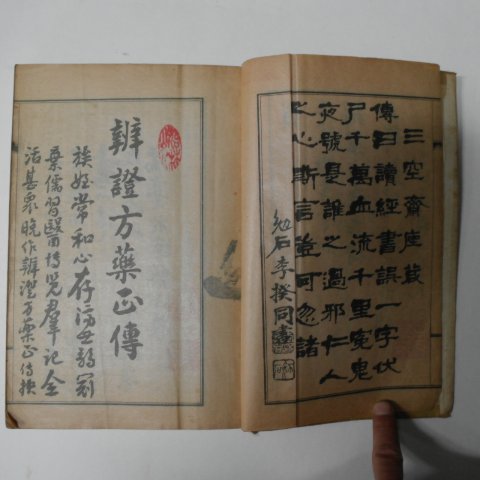 三空齋座箴
傳曰讀經書誤一字伏
尸千萬血流千里冤鬼
夜號是誰之過邪仁人
之心斯言豈可忽諸
勉石李揆同書
辨證方藥正傳
族姪常和心存济世弱冠
棄儒習醫博覽羣記全
活甚衆晩作辨證方藥正傳揆